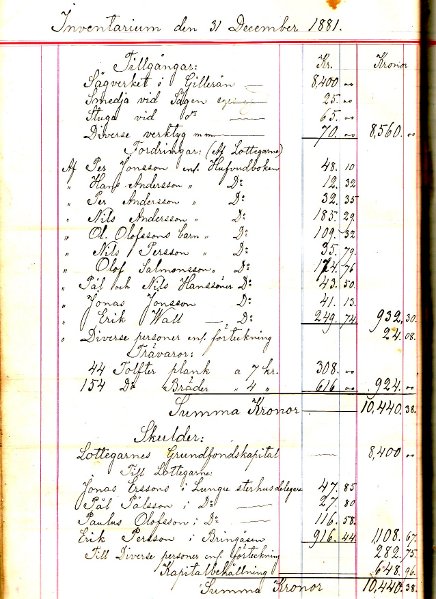 Inventarium den 31 December 1881.
Tillgångar: Kr. Kronor
Sågverket i Gillerån 8,400 00
Smedja vid Sågen 25. 00
Stuga vid Do 65. 00
Diverse verktyg m m 70. 00 8,560. 00
Fordringar: (Af Lottegarne)
Af Per Jonsson enl. Hufvudboken 48. 10
" Hans Andersson " Do 12. 32
" Per Andersson " Do 32. 35
" Nils Andersson " Do 185. 29
" Ol. Olofssons barn " Do 109. 32
" Nils Persson " Do 95. 79
" Olof Salmonsson " Do 174. 76
" Pål och Nils Hanssoner Do 43. 50
" Jonas Jonsson Do 41. 13
" Erik Wall Do 249. 74 932. 30
" Diverse personer enl. förteckning 24. 08.
Trävaror:
44 Tolfter plank a 7 kr. 308. 00
154 Do Bräder " 4 " 616 00 924. 00
Summa Kronor 10,440. 38.
Skulder:
Lottegarnes Grundfondskapital 8,400 00
Till Lottegarne
Jonas Erssons i 47. 85
Pål Pålsson i Do 27. 80
Paulus Olofsson i Do 116. 58.
Erik Persson i Bringåsen 916. 44 1108. 67
Till Diverse personer enl. förteckning 282. 75
Kapitalbehållning 648. 96
Summa Kronor 10,440. 38.